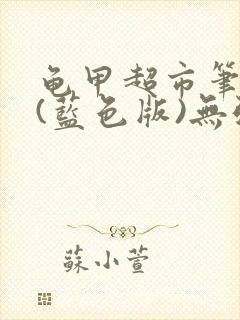 龟甲超市筆
(藍色版)無
蘇小萱